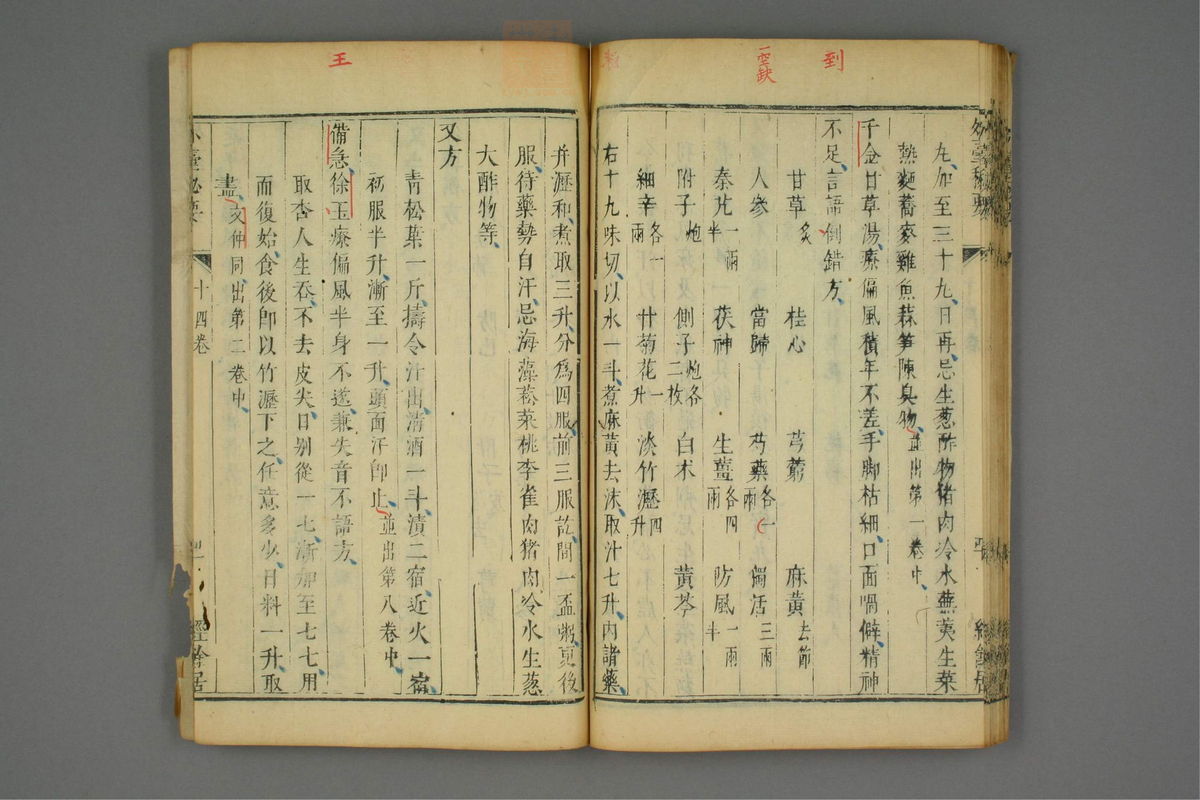 到
一空缺
王
外臺秘要
丸加至三十丸日再忌生葱酢物猪肉冷水蕪荑生菜
熱麵蕎麥雞魚蒜笋陳臭物並出第一卷中
千金甘草湯療偏風積年不差手脚枯細口面喎僻精神
不足言語倒錯方
甘草炙 桂心 芎藭 麻黃去節
人參 當歸 芍藥各一兩 獨活三兩
秦艽一兩半 茯神 生薑各四兩 防風一兩半
附子炮 側子炮各二枚 白术 黃芩
細辛各一兩 甘菊花一升 淡竹瀝四升
右十九味切以水一斗煮麻黃去沫取汁七升內諸藥
并瀝和煮取三升分爲四服前三服訖間一盃粥更後
服待藥勢自汗忌海藻菘菜桃李雀肉猪肉冷水生葱
大酢物等
又方
青松葉一斤擣令汁出清酒一斗漬二宿近火一宿
初服半升漸至一升頭面汗卽止並出第八卷中
備急徐王療偏風半身不遂兼失音不語方
取杏人生吞不去皮尖日别從一七漸加至七七用
而復始食後卽以竹瀝下之任意多少日料一升取
盡文仲同出第二卷中
十四卷
經餘居